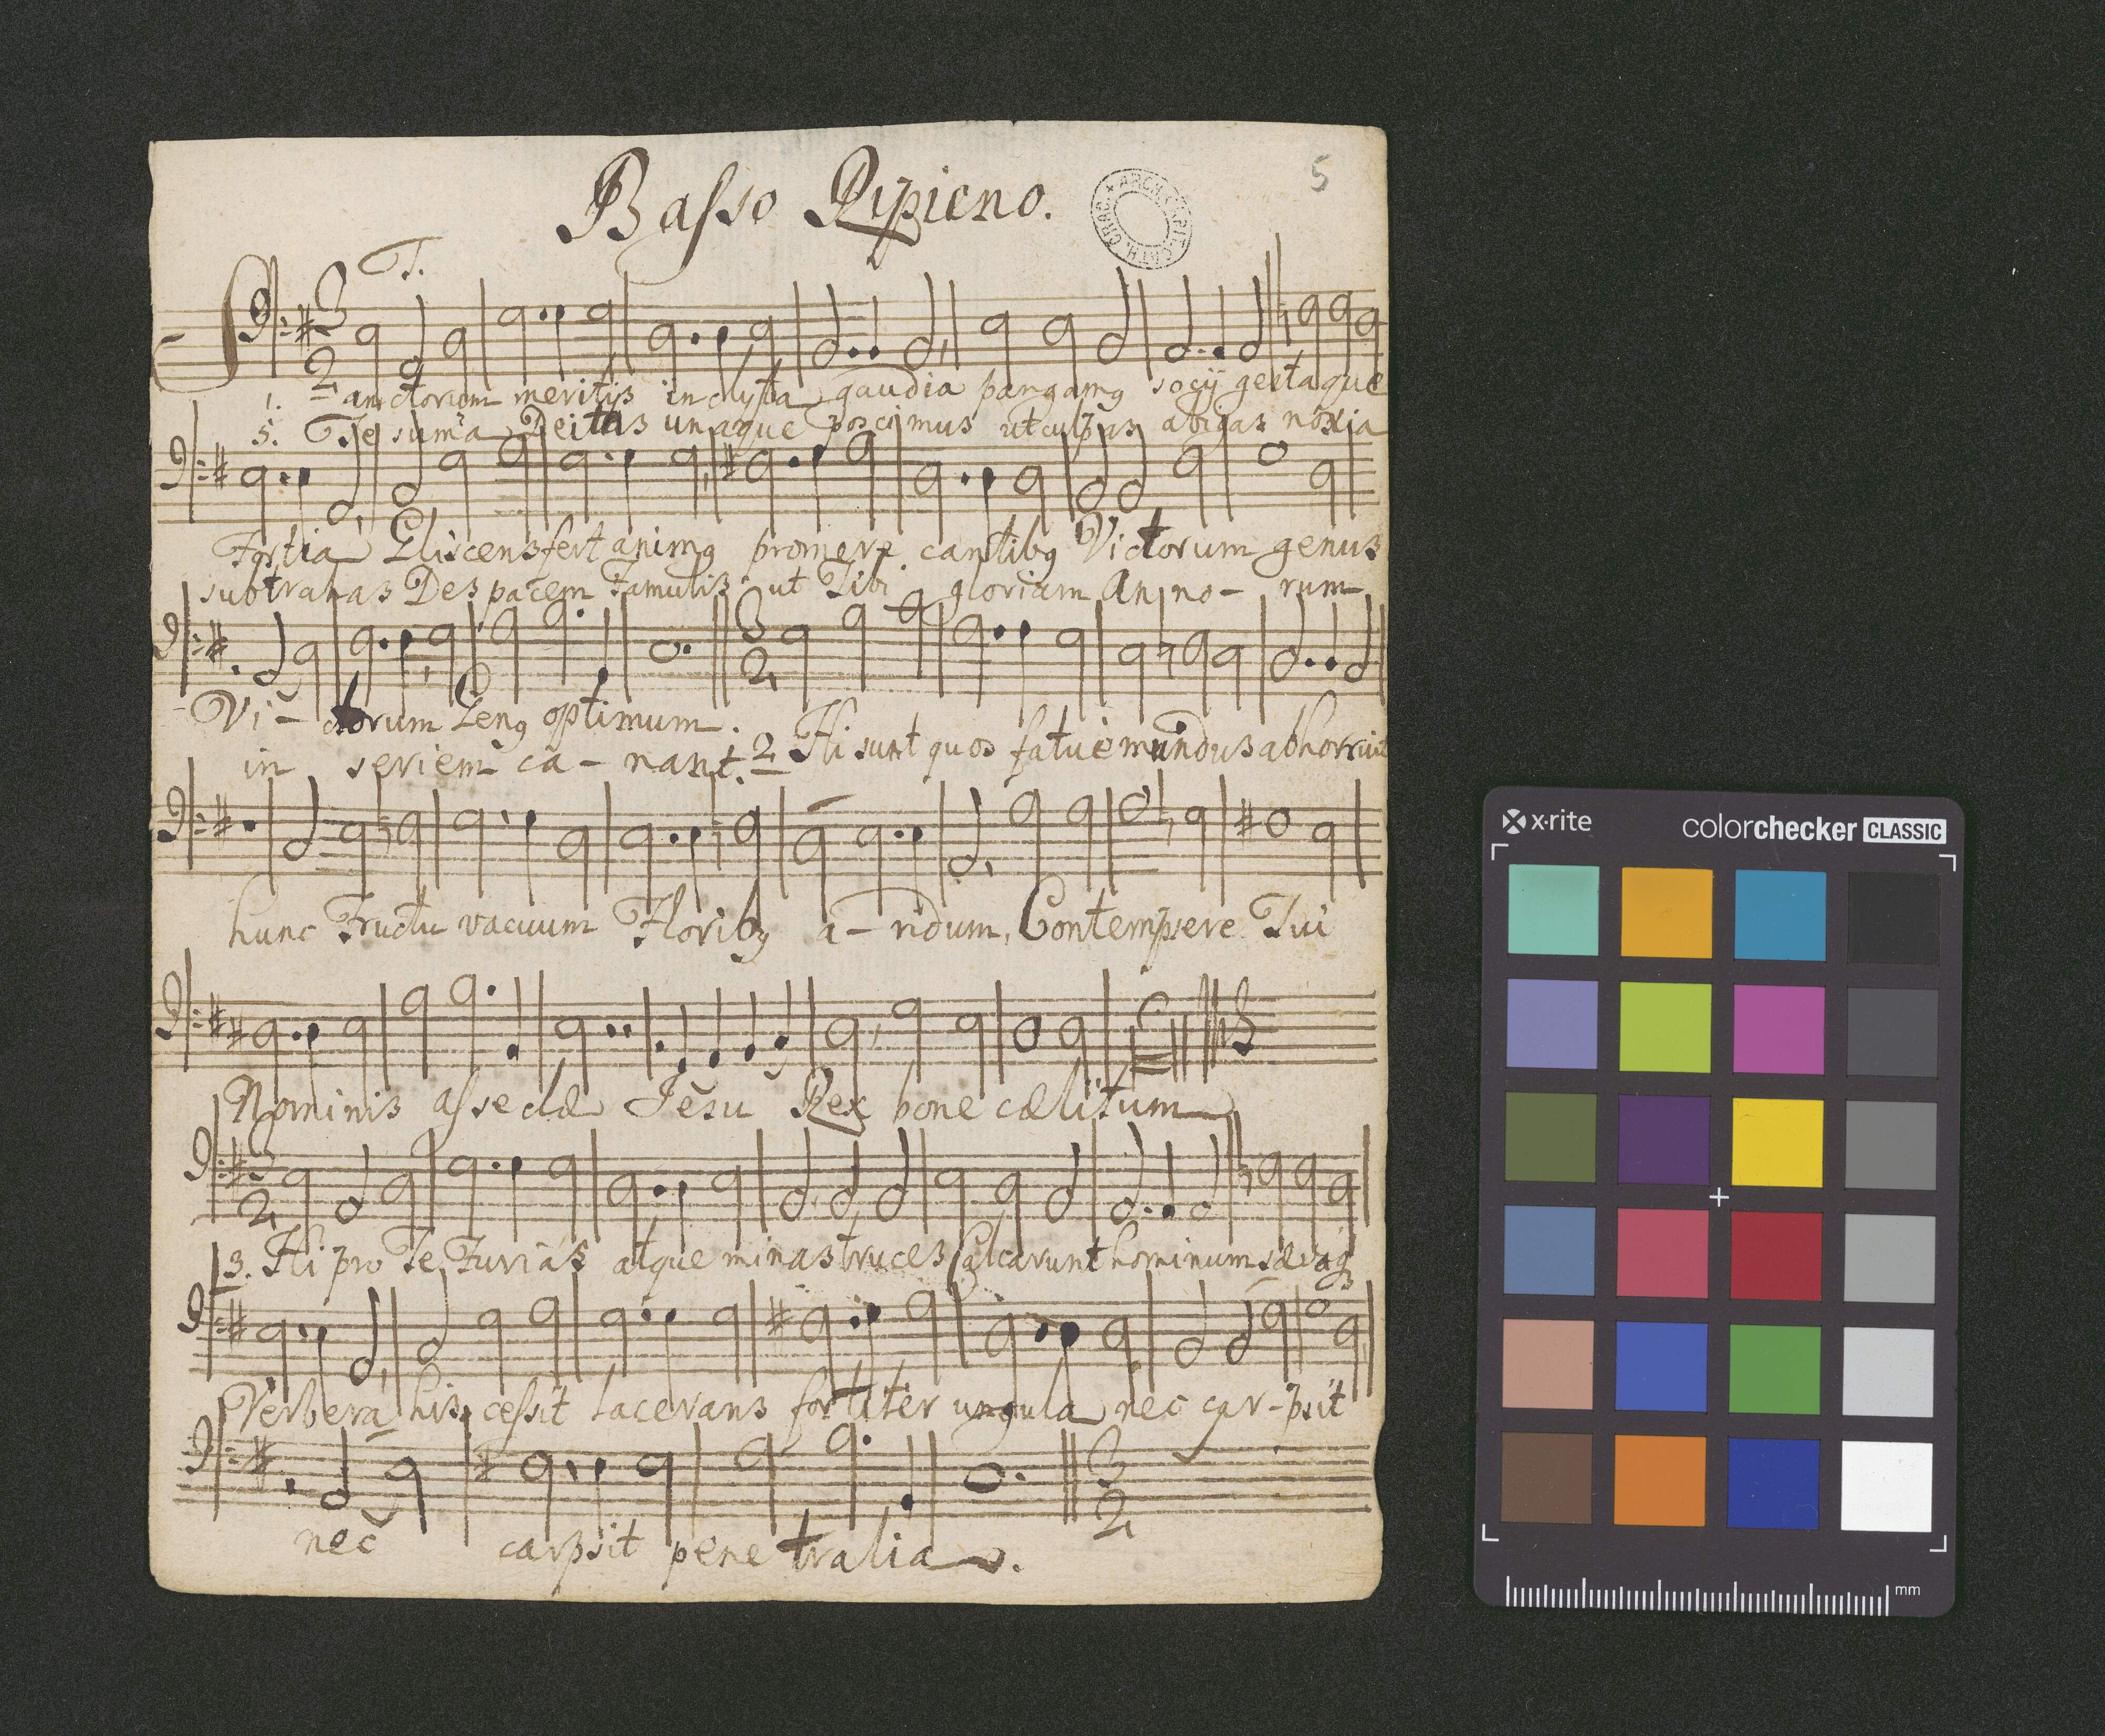 Basso Ripieno.
5
T.
3
2
1. Sanctorum meritis inclyta gaudia pangamg socÿ gestaque
5. Te suma Deitas unaque poscimus ut culpas abigas noxia
Fortia Gliscens fert animg promere cantibg Victorum genus
subtrahas Des pacem Famulis ut Tibi gloriam Anno- rum
3
2
Vi- ctorum Geng optimum.
in seriem ca- nant. 2 Hi sunt quos fatue mundus abhorruit
hunc Fructu vacuum Floribg a- ridum, Contempsere Tui
Nominis asseclæ Jesu Rex bone cælitum
3
2
3. Hi pro Te Furias atque minas truces Calcarunt hominum sævaq
Verbera his cessit lacerans fortiter ungula nec car-psit
3
2
nec carpsit penetralia.
x-rite
colorchecker CLASSIC
mm